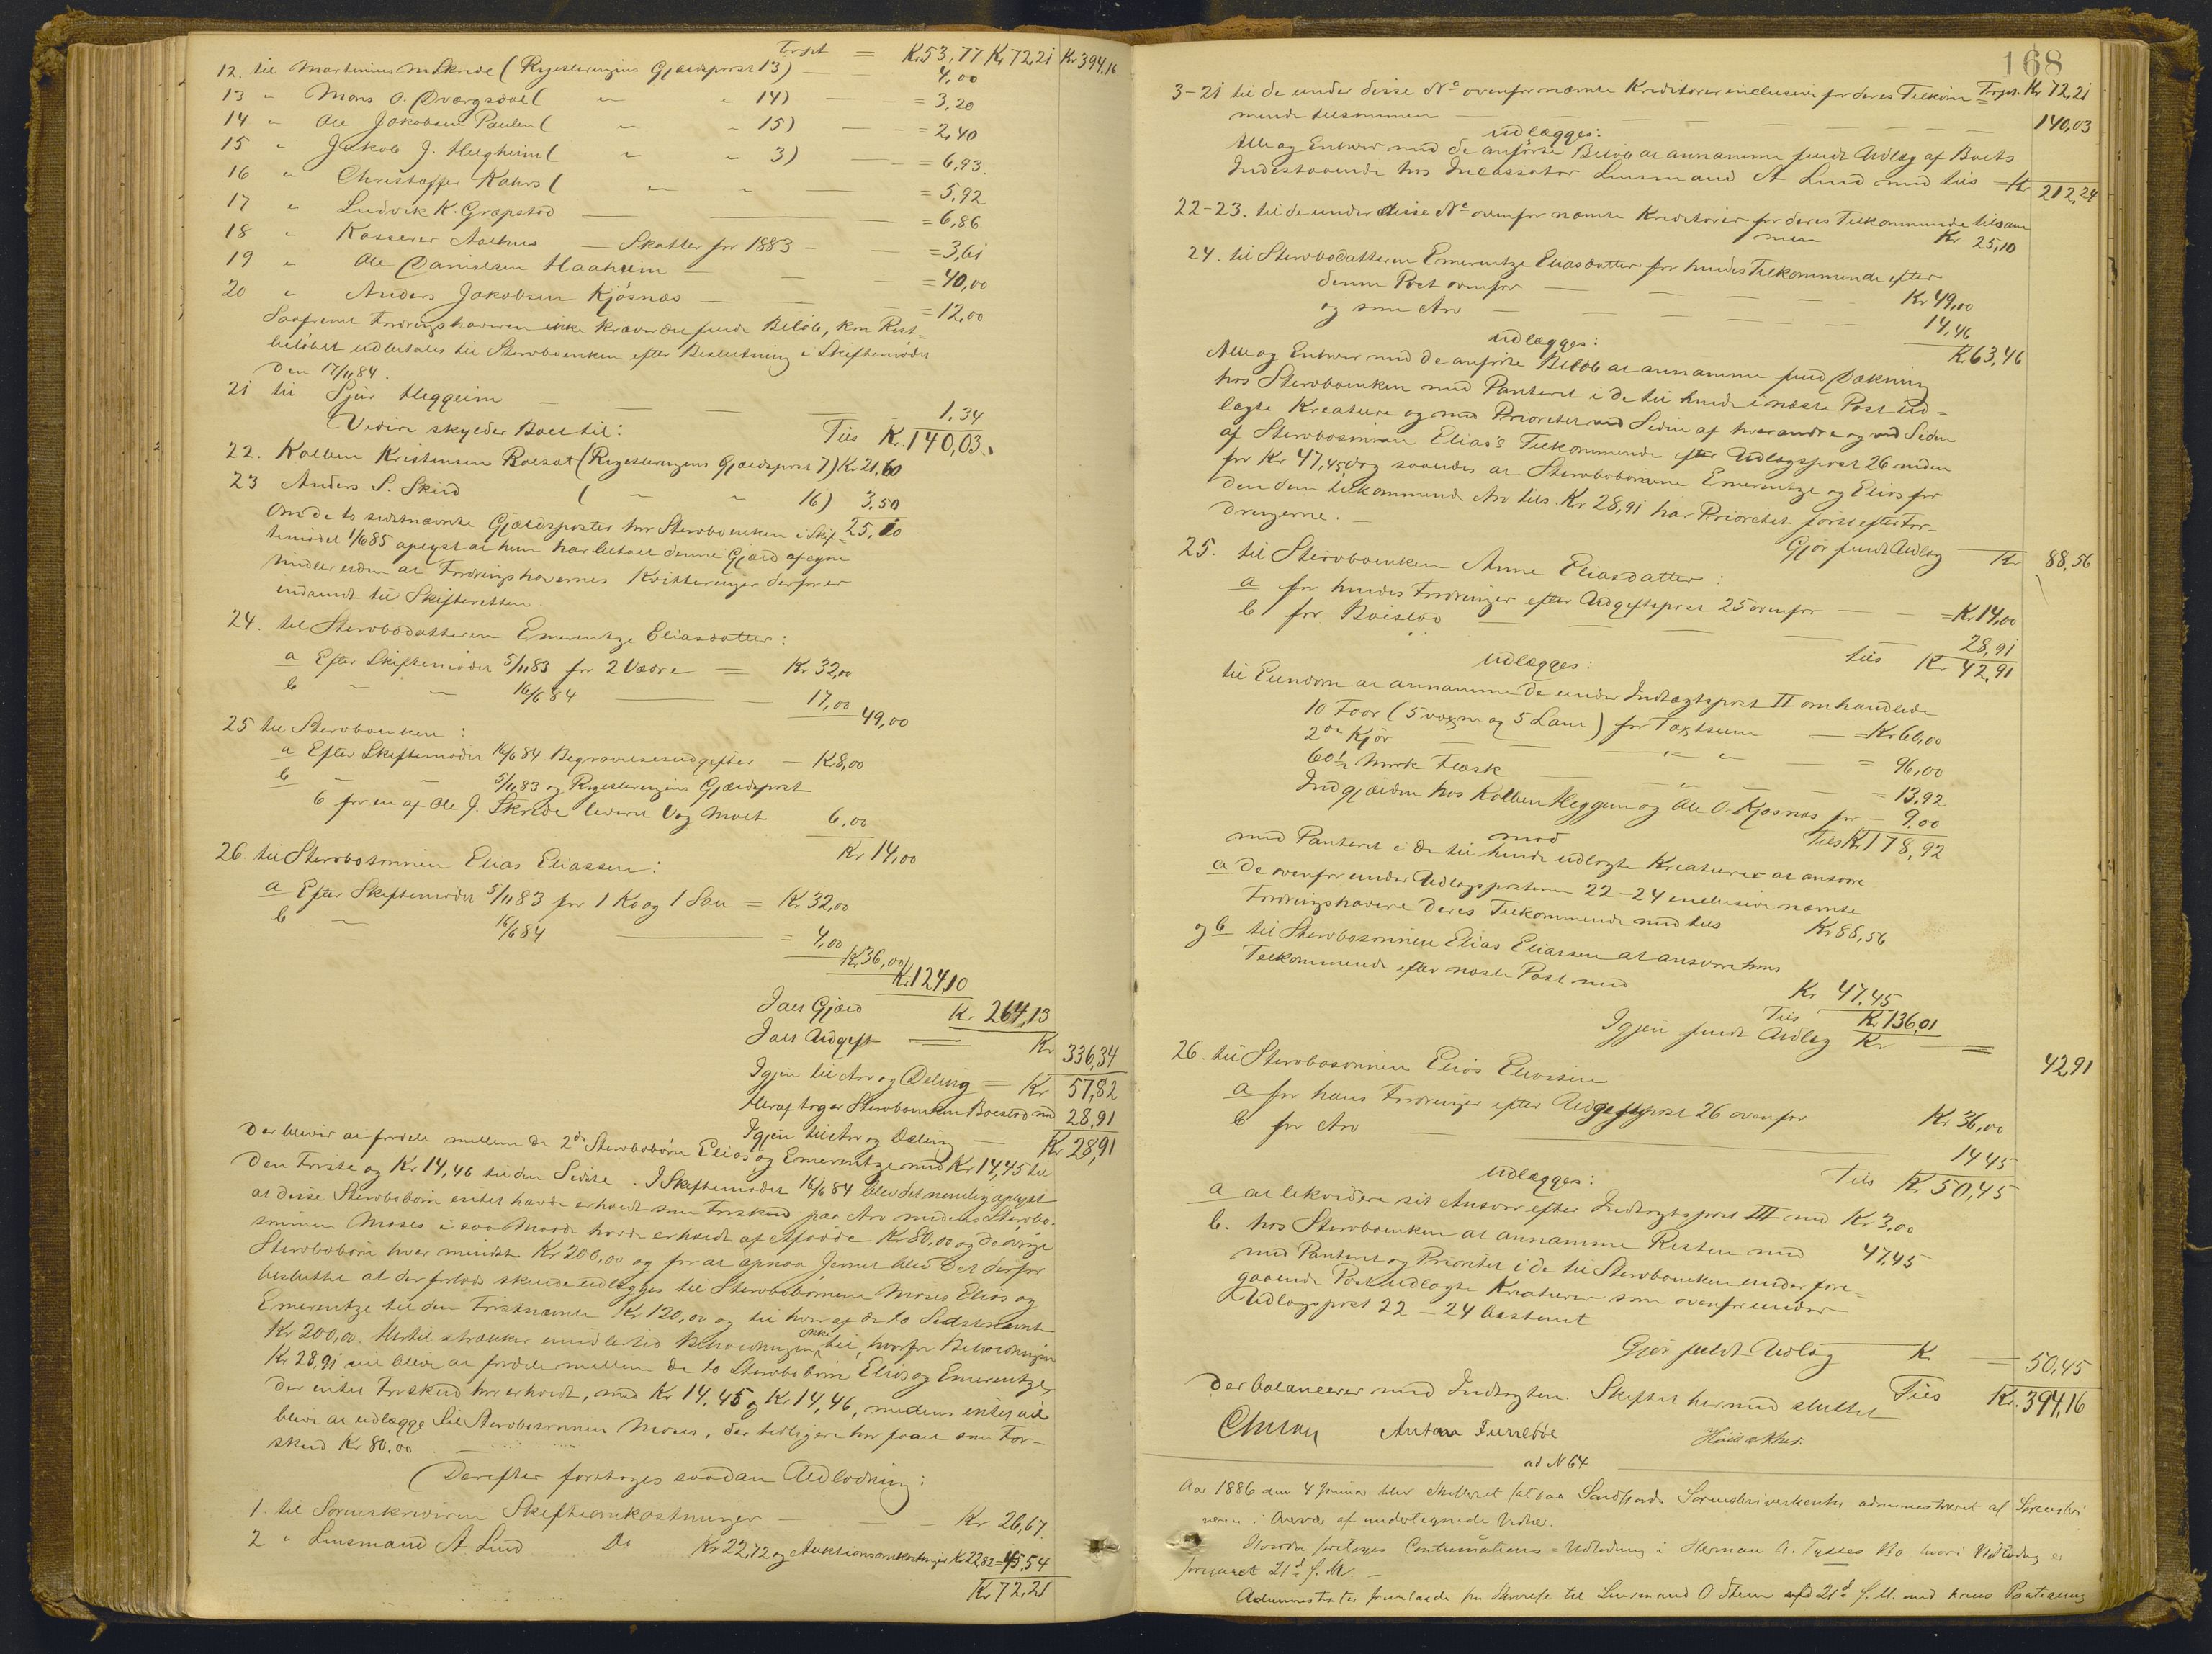 Trpt = Kr 53,77 Kr 72,21 Kr 394,16
12. til Martinius M Skrede (Registeringens Gjældspost 13) — 4,00
13 " Mons O. Dvergsdal ( " " 14) — — = 3,20
14 " Ole Jakobsen Paulen ( " " 15) — — = 2,40
15 " Jakob J. Helgheim ( " " 3) — = 6,93
16 " Christoffer Kahrs ( " " — = 5,92
17 " Ludvik K. Græpstad — — = 6,86
18 " Kasserer Aalhus — Skatter for 1883 — = 3,61
19 " Ole Danielsen Haaheim — — = 40,00
20 " Anders Jakobsen Kjøsnæs — — = 12,00
Saafremt Fordringshaveren ikke kræver det fulde Beløb, kan Rest-
beløbet udbetales til Stervboenken efter Beslutning i Skiftemødet
den 17/11 84.
21 til Sjur Heggeim — — — 1,34
Tils Kr. 140,03
Videre skylder Boet til:
22. Kolben Kristensen Bolsæt (Registeringens Gjældspost 7) Kr 21,60
23 Anders S. Skrid ( " " 16) 3,50
25,10
Om de to sidstnævnte Gjældsposter har Stervboenken i Skif-
temødet 1/6 85 oplyst at hun har betalt denne Gjæld af egne
Midler uden at Fordringshavernes Kvitteringer derfor er
indsendt til Skifteretten.
24. til Stervbodatteren Emerentze Eliasdatter:
a Efter Skiftemødet 5/11 83 for 2 Vædre = Kr 32,00
b " " 16/6 84 — 17,00
49,00
25 til Stervboenken:
a Efter Skiftemødet 16/6 84 Begravelsesudgifter — Kr 8,00
b " " 5/11 83 og Registeringens Gjældspost
6 for en af Ole J. Skrede leveret Vog Malt 6,00
Kr 14,00
26. til Stervbosønnen Elias Eliassen:
a Efter Skiftemødet 5/11 83 for 1 Ko og 1 Sau = Kr 32,00
b " 16/6 84 — = 4,00
Kr 36,00
Kr 124,10
Ialt Gjæld Kr 264,13
Ialt Udgift — Kr 336,34
Igjen til Arv og Deling = Kr 57,82
Heraf tager Stervboenken Boeslod med 28,91
Igjen til Arv og Deling — Kr 28,91
der bliver at fordele mellem de 2de Stervbobørn Elias og Emerentze med Kr 14,45 til
den Første og Kr 14,46 til den Sidste. I Skiftemødet 16/6 84 blev det nemlig oplyst
at disse Stervbobørn intet havde erholdt som Forskud paa Arv medens Stervbo-
sønnen Moses i saa Maade havde erholdt af Afdøde Kr 80,00 og de øvrige
Stervbobørn hver mindst Kr 200,00 og for at opnaa Jevnet blev det derfor
besluttet at der forlods skulde udlægges til Stervbobørnene Moses Elias og
Emerentze til den Førstnævnte Kr 120,00 og til hver af de to Sidstnævnte
Kr 200,00. Hertil strækker imidlertid Beholdningen ikke til, hvorfor Beholdningen
Kr 28,91 vil blive at fordele mellem de to Stervbobørn Elias og Emerentze,
der intet Forskud har erholdt, med Kr 14,45 og Kr 14,46, medens intet vil
blive at udlægge til Stervbosønnen Moses, der tidligere har faaet som For-
skud Kr 80,00. —
Derefter foretoges saadan Udlodning:
1. til Sorenskriveren Skifteomkostninger — Kr 26,67
2 " Lensmand A Lund Do Kr 22,72 og Auktionsomkostninger Kr 22,82 = 45,54
Kr 72,21
168
Trpt. Kr 72,21
3–21 til de under disse No ovenfor nævnte Kreditorer inclusive for deres Tilkom-
mende tilsammen — — — 140,03
udlægges:
Alle og Enhver med de anførte Beløb at annamme fuldt Udlæg af Boets
Indestaaende hos Incassator Lensmand A Lund med tils = Kr 212,24
22–23. til de under disse No ovenfor nævnte Kreditorer for deres Tilkommende tilsam
men Kr 25,10
24. til Stervbodatteren Emerentze Eliasdatter for hendes Tilkommende efter
denne Post ovenfor — — — Kr 49,00
og som Arv — — — 14,46
Kr 63,46
udlægges:
Alle og Enhver med de anførte Beløb at annamme fuld Dækning
hos Stervboenken med Panteret i de til hende i næste Post ud-
lagte Kreature og med Prioritet ved Siden af hverandre og ved Siden
af Stervbosønnen Elias's Tilkommende efter Udlægspost 26 neden
for Kr 47,45, dog saaledes at Stervbobørnene Emerentze og Elias for
den dem tilkommende Arv tils. Kr 28,91 har Prioritet først efter For-
dringerne. —
Gjør fuldt Udlæg — Kr 88,56
25. til Stervboenken Anne Eliasdatter:
a for hendes Fordringer efter Udgiftspost 25 ovenfor — = Kr 14,00
b for Boeslod — — — 28,91
tils Kr 42,91
udlægges:
til Eiendom at annamme de under Indtægtspost II omhandlede
10 Foor (5 voxne og 5 Lam) for Taxtsum — = Kr 60,00
2de Kjør — " " — = 96,00
60½ Mark Flæsk — " — = 13,92
Indgjælden hos Kolben Heggeim og Ole O. Kjøsnæs for — 9,00
Tils Kr 178,92
mod
med Panteret i de til hende udlagte Kreaturer at ansvare
a de ovenfor under Udlægsposterne 22–24 inclusive nævnte
Fordringshavere deres Tilkommende med tils Kr 88,56
og b til Stervbosønnen Elias Eliassen at ansvare hans
Tilkommende efter næste Post med Kr 47,45
Tils Kr 136,01
Igjen fuldt Udlæg Kr = 42,91
26. til Stervbosønnen Elias Eliassen
a for hans Fordringer efter Udgiftspost 26 ovenfor Kr 36,00
b for Arv — 14 45
Tils Kr 50,45
udlægges:
a at likvidere sit Ansvar efter Indtægtspost III med Kr 3,00
b. hos Stervboenken at annamme Resten med 47,45
med Panteret og Prioritet i de til Stervboenken under fore-
gaaende Post udlagte Kreaturer som ovenfor under
Udlægspost 22–24 bestemt
Gjør fuldt Udlæg — Kr — 50,45
Tils Kr. 394,16
der balancerer med Indtægten. Skiftet hermed sluttet
Anton Furredde
ad N 64
Aar 1886 den 4 Januar blev Skifteret sat paa Søndfjords Sorenskriverkontor administreret af Sorenskri
veren i Overvær af underlegnede Vidner.
Hvorda foretoges Continuations-Udlodning i Herman A. Tysses Bo hvori Udlodning er
forsynet 21d f. M. —
Administrator fremlagde sin Skrivelse til Lensmand O Steen af 21d f. M. med hans Paategning